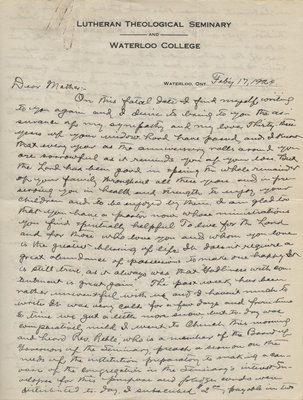 LUTHERAN THEOLOGICAL SEMINARY
AND
WATERLOO COLLEGE
WATERLOO, ONT. Feb'y 17, 1924
Dear Mother:-
On this fatal date I find myself writing
to you again and I desire to bring to you the as-
surance of my sympathy and my love. Thirty three
years of your widowhood have passed and I know
that every year as the anniversary rolls around you
are sorrowful as it reminds you of your loss. But
the Lord has been good in sparing the whole remainder
of your family throughout all these years and in pre-
serving you in health and strength to enjoy your
children and to be enjoyed by them. I am glad too
that you have a pastor now whose ministrations
you find spiritually helpful. To live for the Lord
and for those who love you and whom you love
is the greatest blessing of life. It doesn't require a
great abundance of possessions to make one happy. It
is still true as it always was that Godliness with con-
tentment is great gain. The past week has been
rather uneventful with us and I haven't much to
write. It was very cold for a few days and from time
to time we got a little more snow but to-day was
comparatively mild. I went to Church this morning
and heard Rev. Reble, who is a member of the Board of
Governors of the Seminary, preach a sermon on the
needs of the institution preparatory to making a can-
vass of the congregation in the Seminary's interest. En-
velopes for this purpose and pledge cards were
distributed to-day. I subscribed payable in two